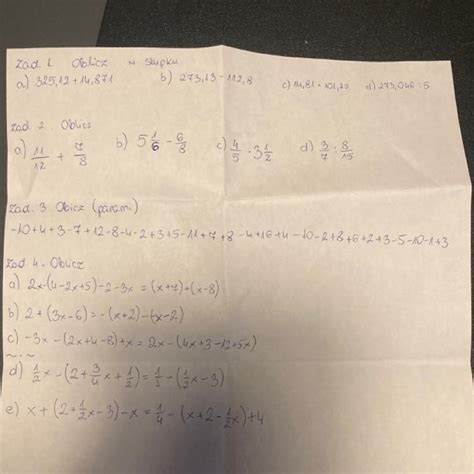 Zad 1. Oblicz w słupku
a) 325,12 + 14,871 b) 273,13 - 112,8 c) 14,81 · 101,20 d) 273,046 : 5
Zad 2. Oblicz
a) 11/12 + 7/8 b) 5 1/6 - 6/8 c) 4/5 · 3 1/2 d) 3/7 : 8/15
Zad. 3 Oblicz (param)
-10+4+3-7+12-8-4-2+3+5-11+7+8-4+16+4-10-2+8+6+2+3-5-10-1+3
Zad 4. Oblicz
a) 2x-(4-2x+5)-2-3x=(x+7)+(x-8)
b) 2+(3x-6)=-(x+2)-(x-2)
c) -3x-(2x+4-8)+x=2x-(4x+3-12+5x)
d) 1/2x-(2+3/4x+1/2)=1/8-(1/2x-3)
e) x+(2+1/2x-3)-x=1/4-(x+2-1/2x)+4